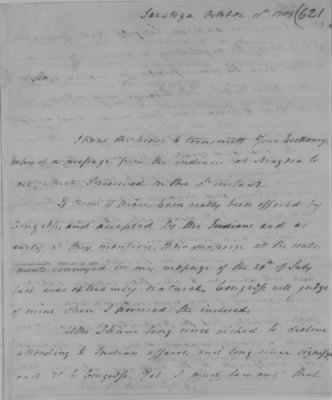 Saratoga October 11th
Sir
I have the honor to transmit Your Excellency,
Copy of a message from the Indians at Niagara to
me, which I received on the instant
If terms of Peace have really been offered by
Congress, and accepted by the Indians and as
early as they mention. their surprise at the
ment conveyed in my message of the 29th of July
last was extremely natural, Congress will judge
of mine when I perused the inclosed,
Altho I have long since wished to decline
attending to Indian affairs, and long since
it to Congress. Yet I must lament that